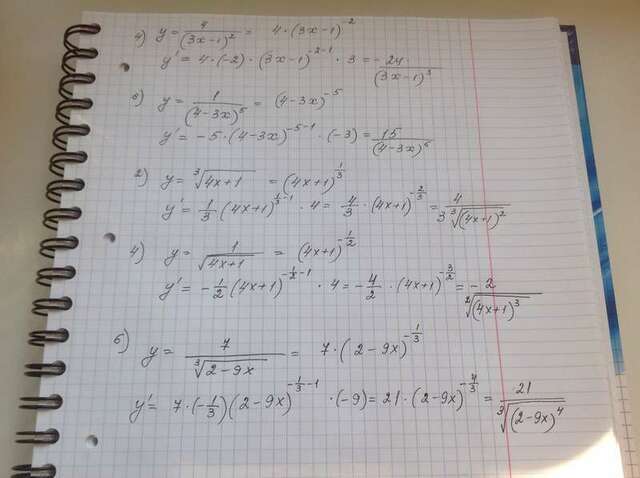 4) y = 4/(3x-1)² = 4·(3x-1)⁻²
y' = 4·(-2)·(3x-1)⁻²⁻¹ · 3 = -24/(3x-1)³
y = 1/(4-3x)⁵ = (4-3x)⁻⁵
y' = -5·(4-3x)⁻⁵⁻¹ ·(-3) = 15/(4-3x)⁶
2) y = ∛(4x+1) = (4x+1)^(1/3)
y' = 1/3·(4x+1)^(1/3-1) · 4 = 4/3·(4x+1)^(-2/3) = 4/(3∛((4x+1)²))
4) y = 1/√(4x+1) = (4x+1)^(-1/2)
y' = -1/2·(4x+1)^(-1/2-1) · 4 = -4/2·(4x+1)^(-3/2) = -2/²√((4x+1)³)
6) y = 7/∛(2-9x) = 7·(2-9x)^(-1/3)
y' = 7·(-1/3)(2-9x)^(-1/3-1) ·(-9) = 21·(2-9x)^(-4/3) = 21/∛((2-9x)⁴)